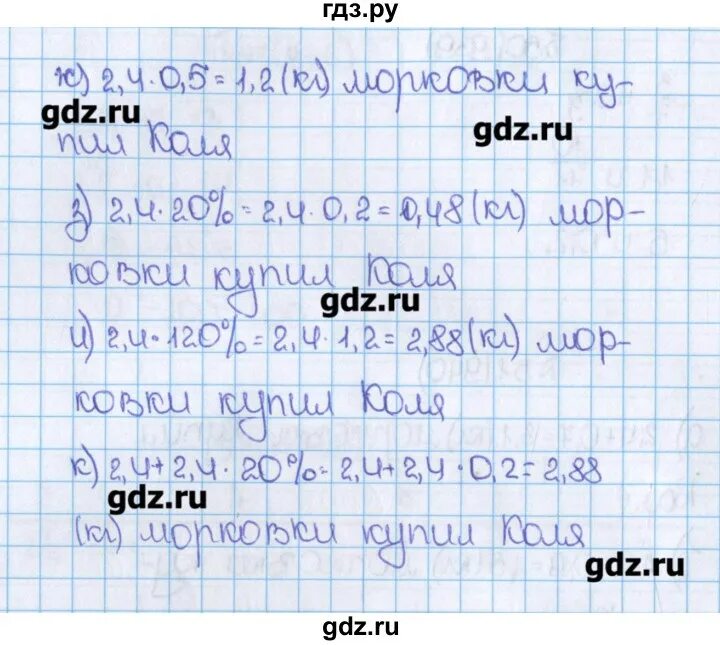 гдз.ру
ж) 2,4 · 0,5 = 1,2 (кг) морковки ку-
gdz.ru
gdz.ru
пил Коля
з) 2,4 · 20% = 2,4 · 0,2 = 0,48 (кг) мор-
ковки купил Коля
gdz.ru
и) 2,4 · 120% = 2,4 · 1,2 = 2,88 (кг) мор-
ковки купил Коля
к) 2,4 + 2,4 · 20% = 2,4 + 2,4 · 0,2 = 2,88
gdz.ru
(кг) морковки купил Коля
gdz.ru
gdz.ru